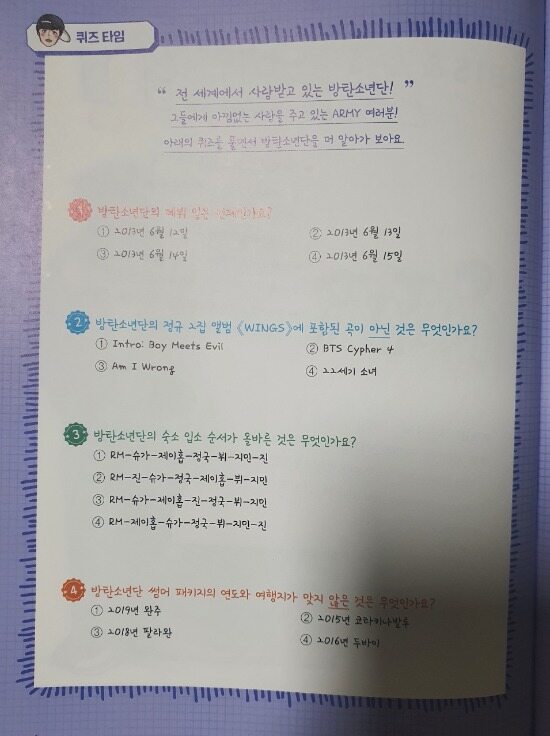 퀴즈 타임
“ 전 세계에서 사랑받고 있는 방탄소년단! ”
그들에게 아낌없는 사랑을 주고 있는 ARMY 여러분!
아래의 퀴즈를 풀면서 방탄소년단을 더 알아가 보아요.
1 방탄소년단의 데뷔 일은 언제인가요?
① 2013년 6월 12일 ② 2013년 6월 13일
③ 2013년 6월 14일 ④ 2013년 6월 15일
2 방탄소년단의 정규 2집 앨범 《WINGS》에 포함된 곡이 아닌 것은 무엇인가요?
① Intro: Boy Meets Evil ② BTS Cypher 4
③ Am I Wrong ④ 22세기 소녀
3 방탄소년단의 숙소 입소 순서가 올바른 것은 무엇인가요?
① RM-슈가-제이홉-정국-뷔-지민-진
② RM-진-슈가-정국-제이홉-뷔-지민
③ RM-슈가-제이홉-진-정국-뷔-지민
④ RM-제이홉-슈가-정국-뷔-지민-진
4 방탄소년단 썸머 패키지의 연도와 여행지가 맞지 않은 것은 무엇인가요?
① 2019년 완주 ② 2015년 코타키나발루
③ 2018년 팔라완 ④ 2016년 두바이